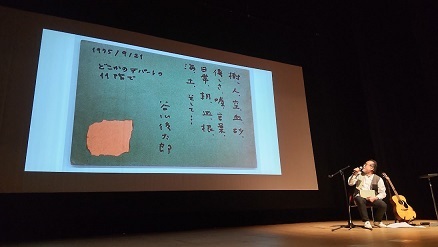 1995/9/21
どこかのデパートの
11階で
樹、人、空、血、砂、
傷、さ、嘘、言葉、
日常、机、泥、根、
海、土、そして…
谷川俊太郎